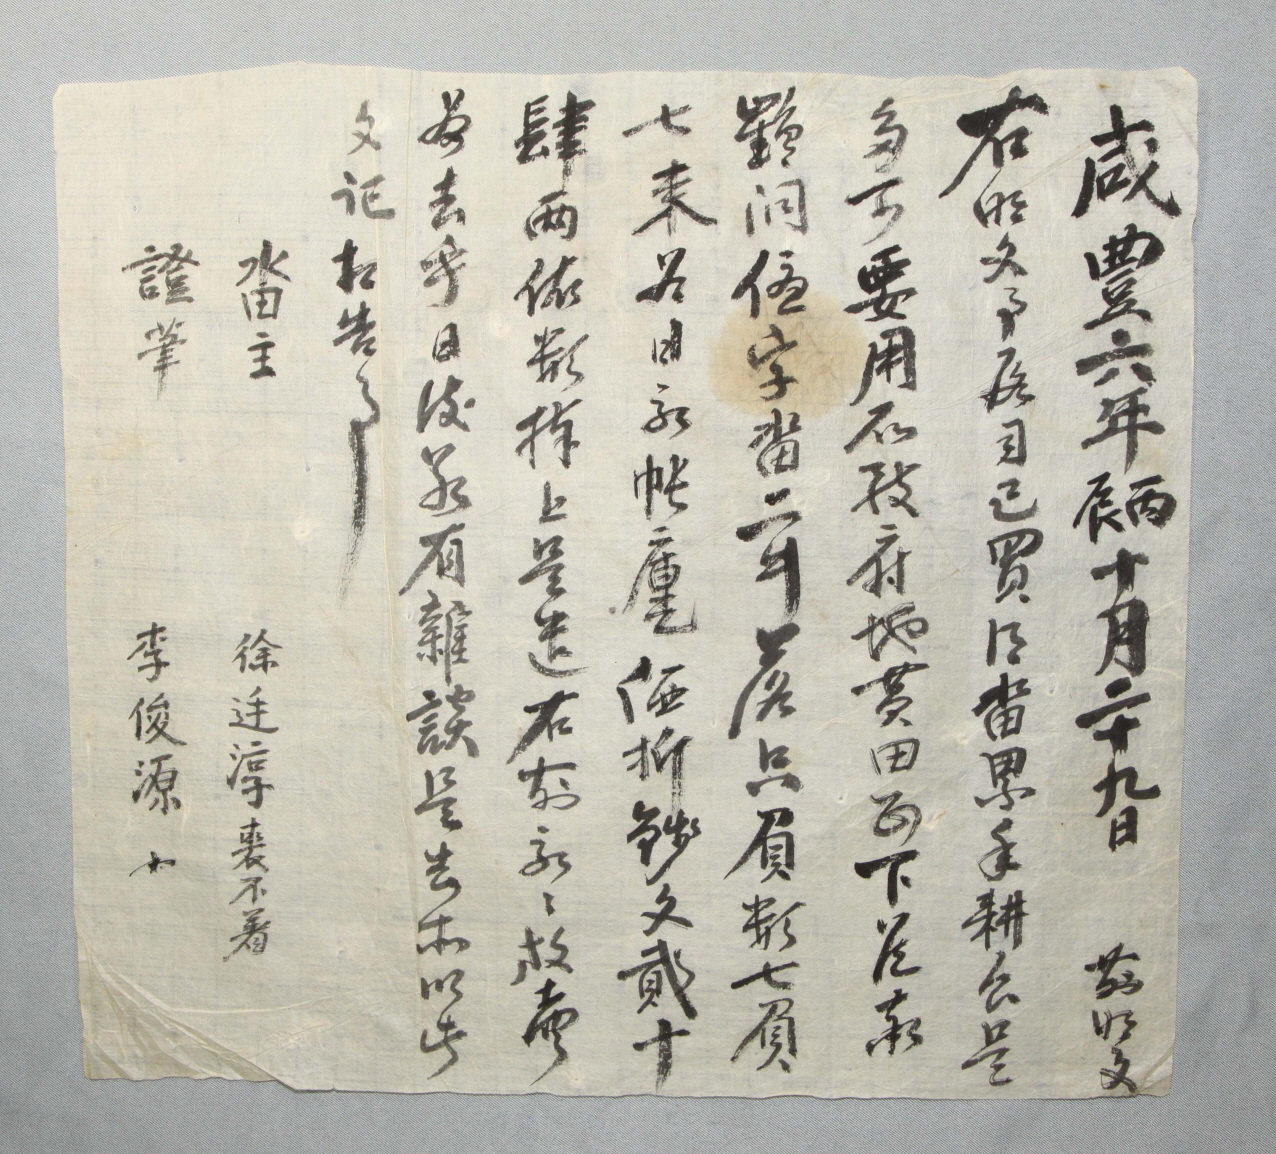 咸豐六年丙辰十月二十九日 前明文
右明文事段自己買得畓累年耕食是
多可要用所致府地黃田面下
字畓二斗落只負數七負
七束㐣印永帳庫價折錢文貳十
肆兩依數捧上是遣右前永永放賣
爲去乎日後若有雜談是去等以此
文記相告事
畓主 徐廷淳喪不着
證筆 李俊源